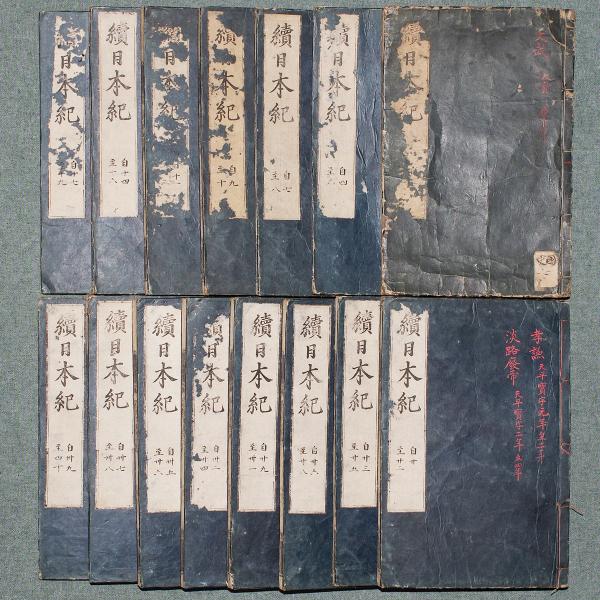 續日本紀
續日本紀
自四
續日本紀
自七
至八
續日本紀
自九
至十
日本紀
續日本紀
自十四
至十六
續日本紀
自十七
續日本紀
自廿
至廿二
孝謙 天平寳字元年至二年
淡路廢帝 天平寳字二年至四年
續日本紀
自廿三
至廿五
續日本紀
自廿六
至廿八
續日本紀
自廿九
至卅一
續日本紀
自卅二
至卅四
續日本紀
自卅五
至卅六
續日本紀
自卅七
至卅八
續日本紀
自卅九
至四十